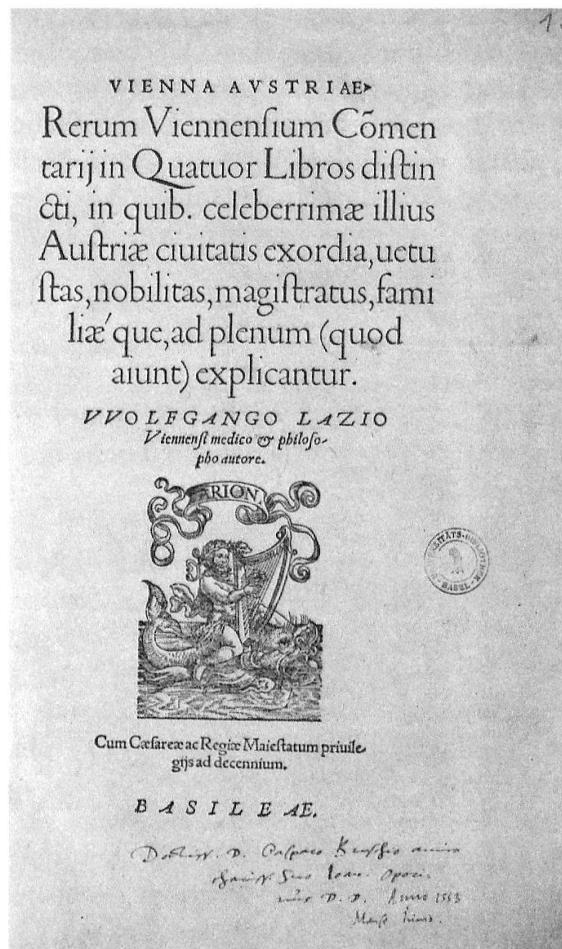 1.
VIENNA AVSTRIAE
Rerum Viennenſium Cõmen
tarij in Quatuor Libros diſtin
cti, in quib. celeberrimæ illius
Auſtriæ ciuitatis exordia, uetu
ſtas, nobilitas, magiſtratus, fami
liæ'que, ad plenum (quod
aiunt) explicantur.
VVOLFGANGO LAZIO
Viennenſi medico & philoſo-
pho autore.
ARION.
BASEL
Cum Cæſareæ ac Regiæ Maieſtatum priuile-
gijs ad decennium.
BASILEAE.
D. Caſparo Bruſchio amico
ſuo Ioan. Opori
D. D. Anno 1553